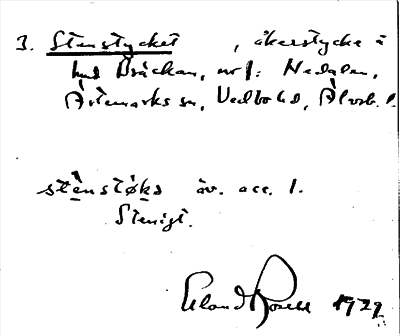 1. Stenstycket, åkerstycke i
hmd Bräckan, nrf: Nedalen,
Ärtemarks sn, Vedbo hd, Älvsb. l.
stènstøks äv. acc. 1.
Stenigt.
Erland Rosell 1929